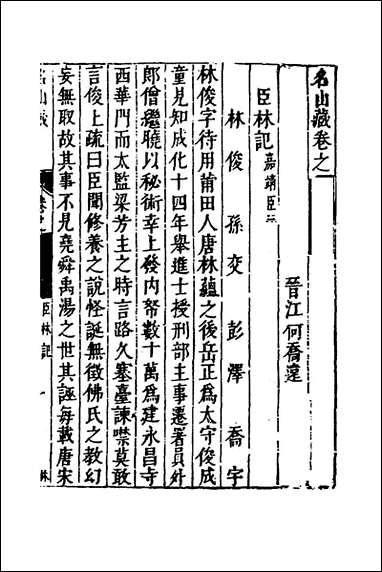 名山藏卷之
晉江何喬遠
臣林記嘉靖臣
林俊 孫交 彭澤 喬宇
林俊字待用莆田人唐林蘊之後岳正為太守俊成
童見知成化十四年舉進士授刑部主事遷署員外
郎僧繼曉以秘術幸上發內帑數十萬為建永昌寺
西華門而太監梁芳主之時言路久塞臺諫噤莫敢
言俊上疏曰臣聞修養之說怪誕無徵佛氏之教幻
妄無取故其事不見堯舜禹湯之世其誣每載唐宋
名山藏
臣林記
一
林